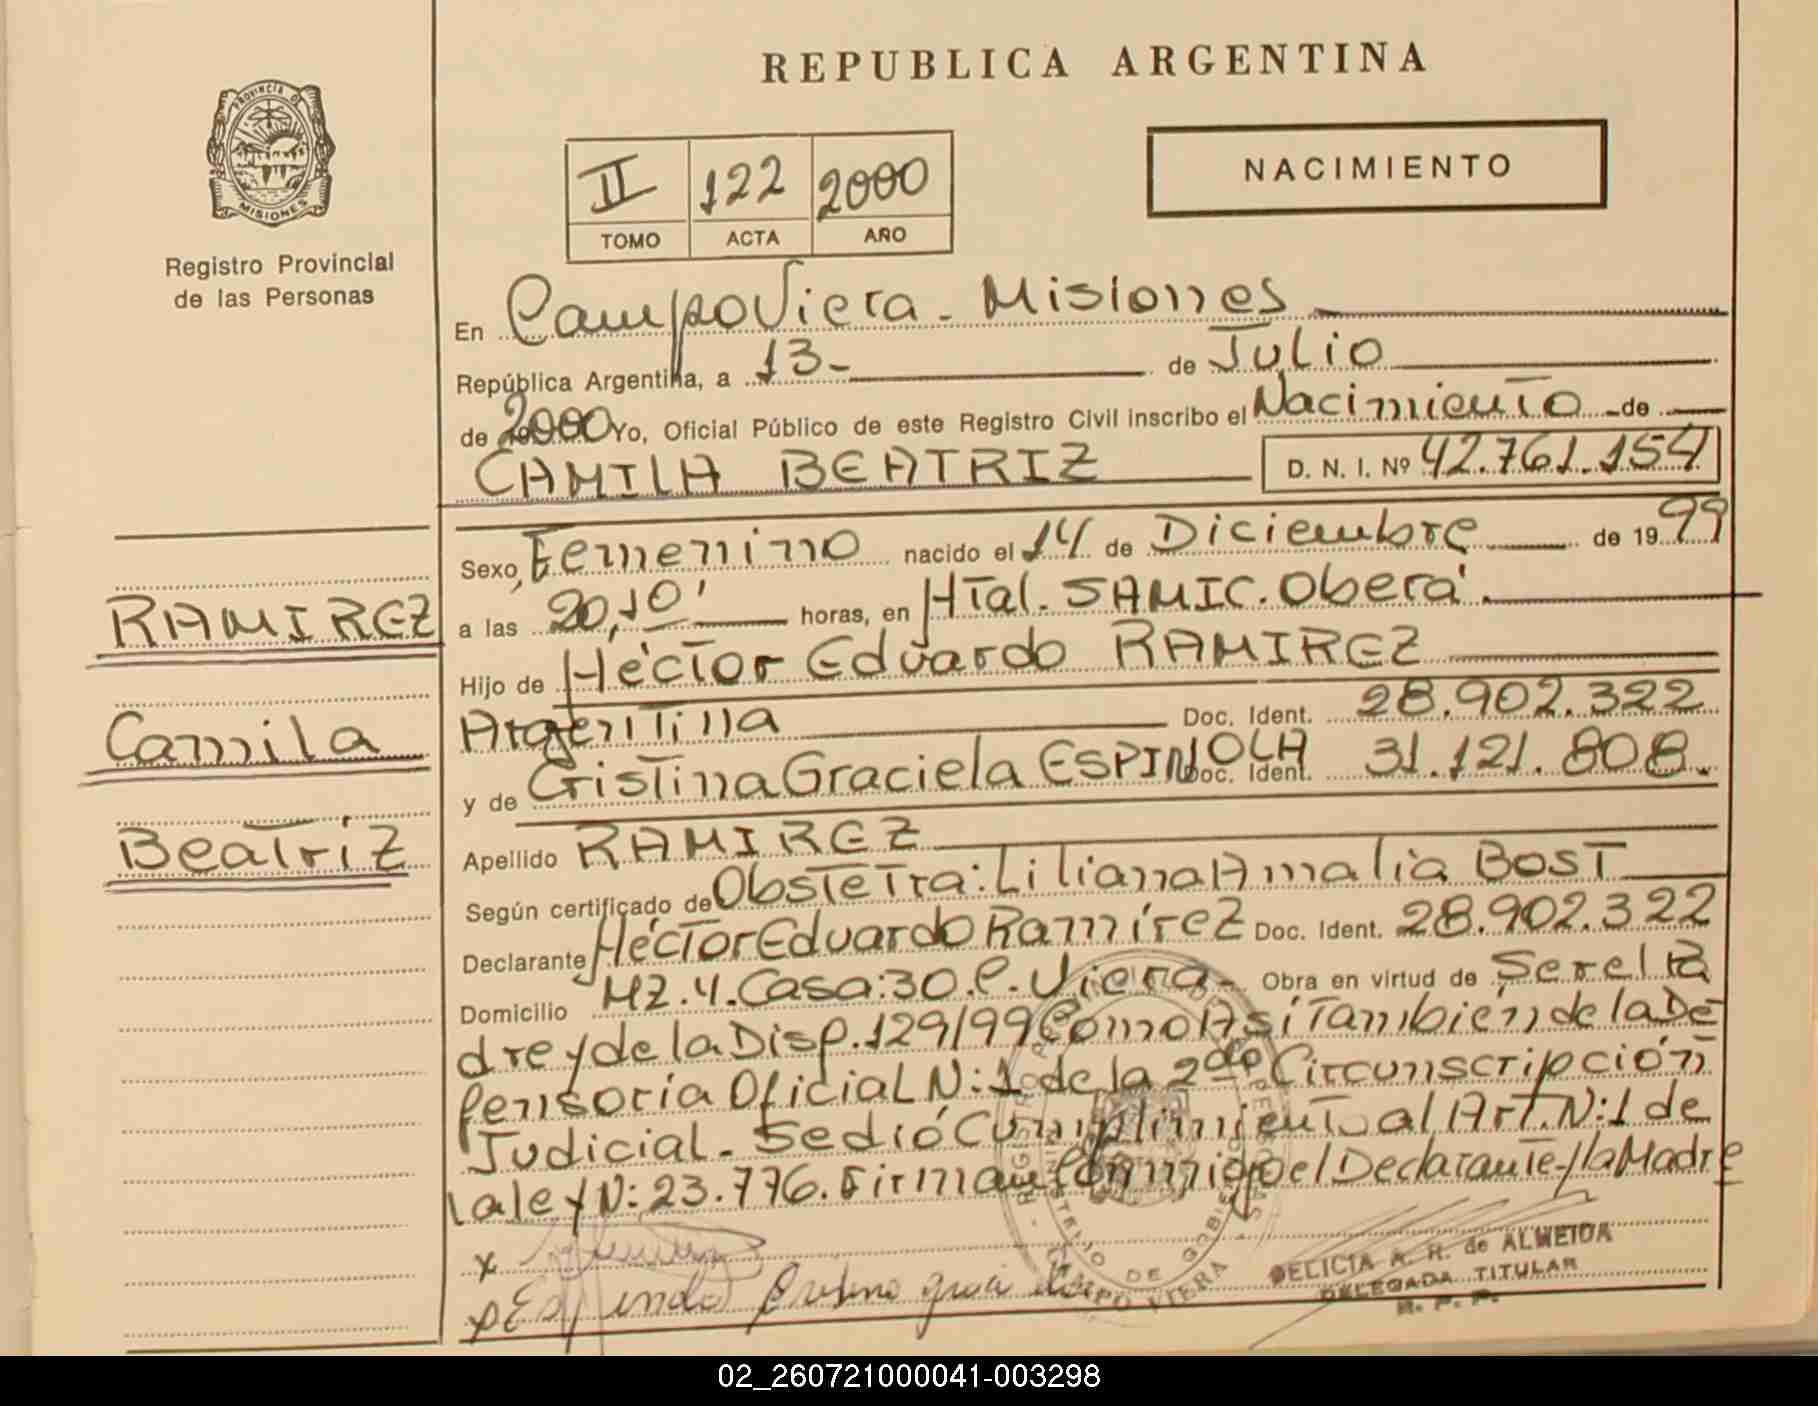 REPUBLICA ARGENTINA
PROVINCIA DE
MISIONES
Registro Provincial
de las Personas
II 122 2000
TOMO ACTA AÑO
NACIMIENTO
En Campo Viera - Misiones
República Argentina, a 13 - de Julio
de 2000 Yo, Oficial Público de este Registro Civil inscribo el Nacimiento de
CAMILA BEATRIZ D. N. I. Nº 42.761.154
Sexo, Femenino nacido el 14 de Diciembre de 1999
a las 20,10' horas, en Htal. SAMIC. Oberá.
Hijo de Héctor Eduardo RAMIREZ
Argentina Doc. Ident. 28.902.322
y de Cristina Graciela ESPINOLA Doc. Ident. 31.121.808.
Apellido RAMIREZ
Según certificado de Obstetra: Liliana Amalia BOST
Declarante Héctor Eduardo Ramírez Doc. Ident. 28.902.322
Domicilio MZ.4. Casa:30.C.Viera - Obra en virtud de Ser el Pa
dre y de la Disp. 129/99 Como Así También de la De
fensoría Oficial N:1 de la 2da Circunscripción
Judicial. Se dió Cumplimiento al Art. N:1 de
la ley N: 23.776. Firman Conmigo el Declarante y la Madre
RAMIREZ
Camila
Beatriz
x
x
DELICIA A. R. de ALMEIDA
DELEGADA TITULAR
R. P. P.
CAMPO VIERA
02_260721000041-003298